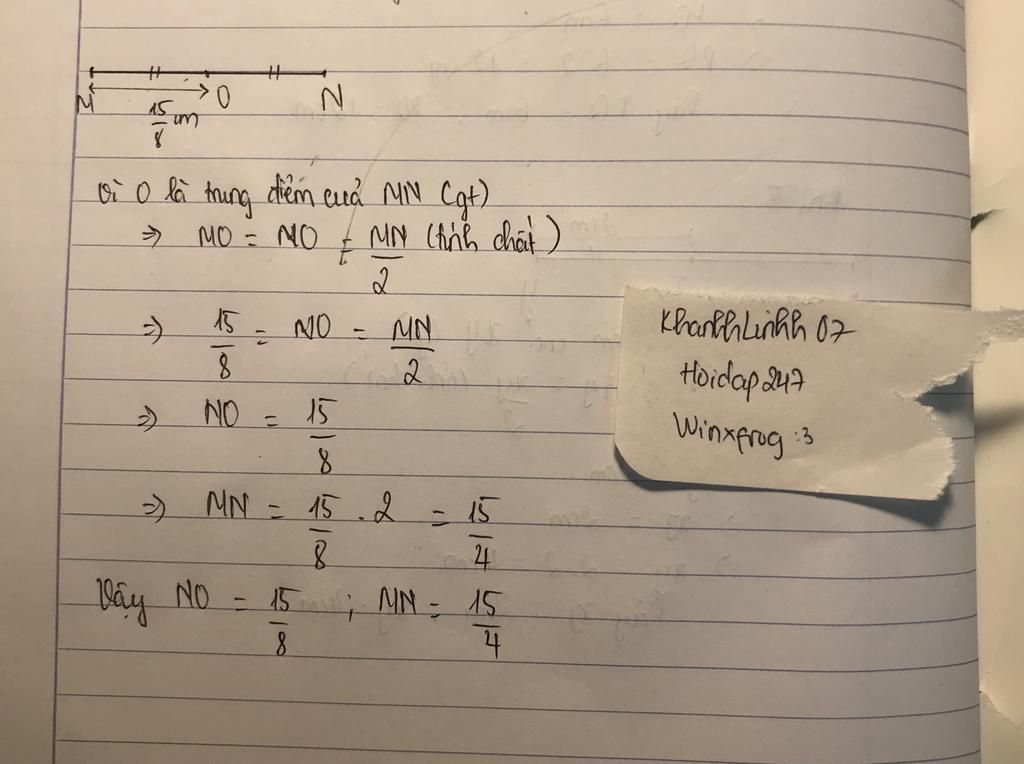 M O N
15/8 cm
Vì O là trung điểm của MN (gt)
=> MO = NO = MN/2 (tính chất)
=> 15/8 = NO = MN/2
=> NO = 15/8
=> MN = 15/8 . 2 = 15/4
Vậy NO = 15/8 ; MN = 15/4
KhanhLinhh 07
Hoidap247
Winxfrog :3